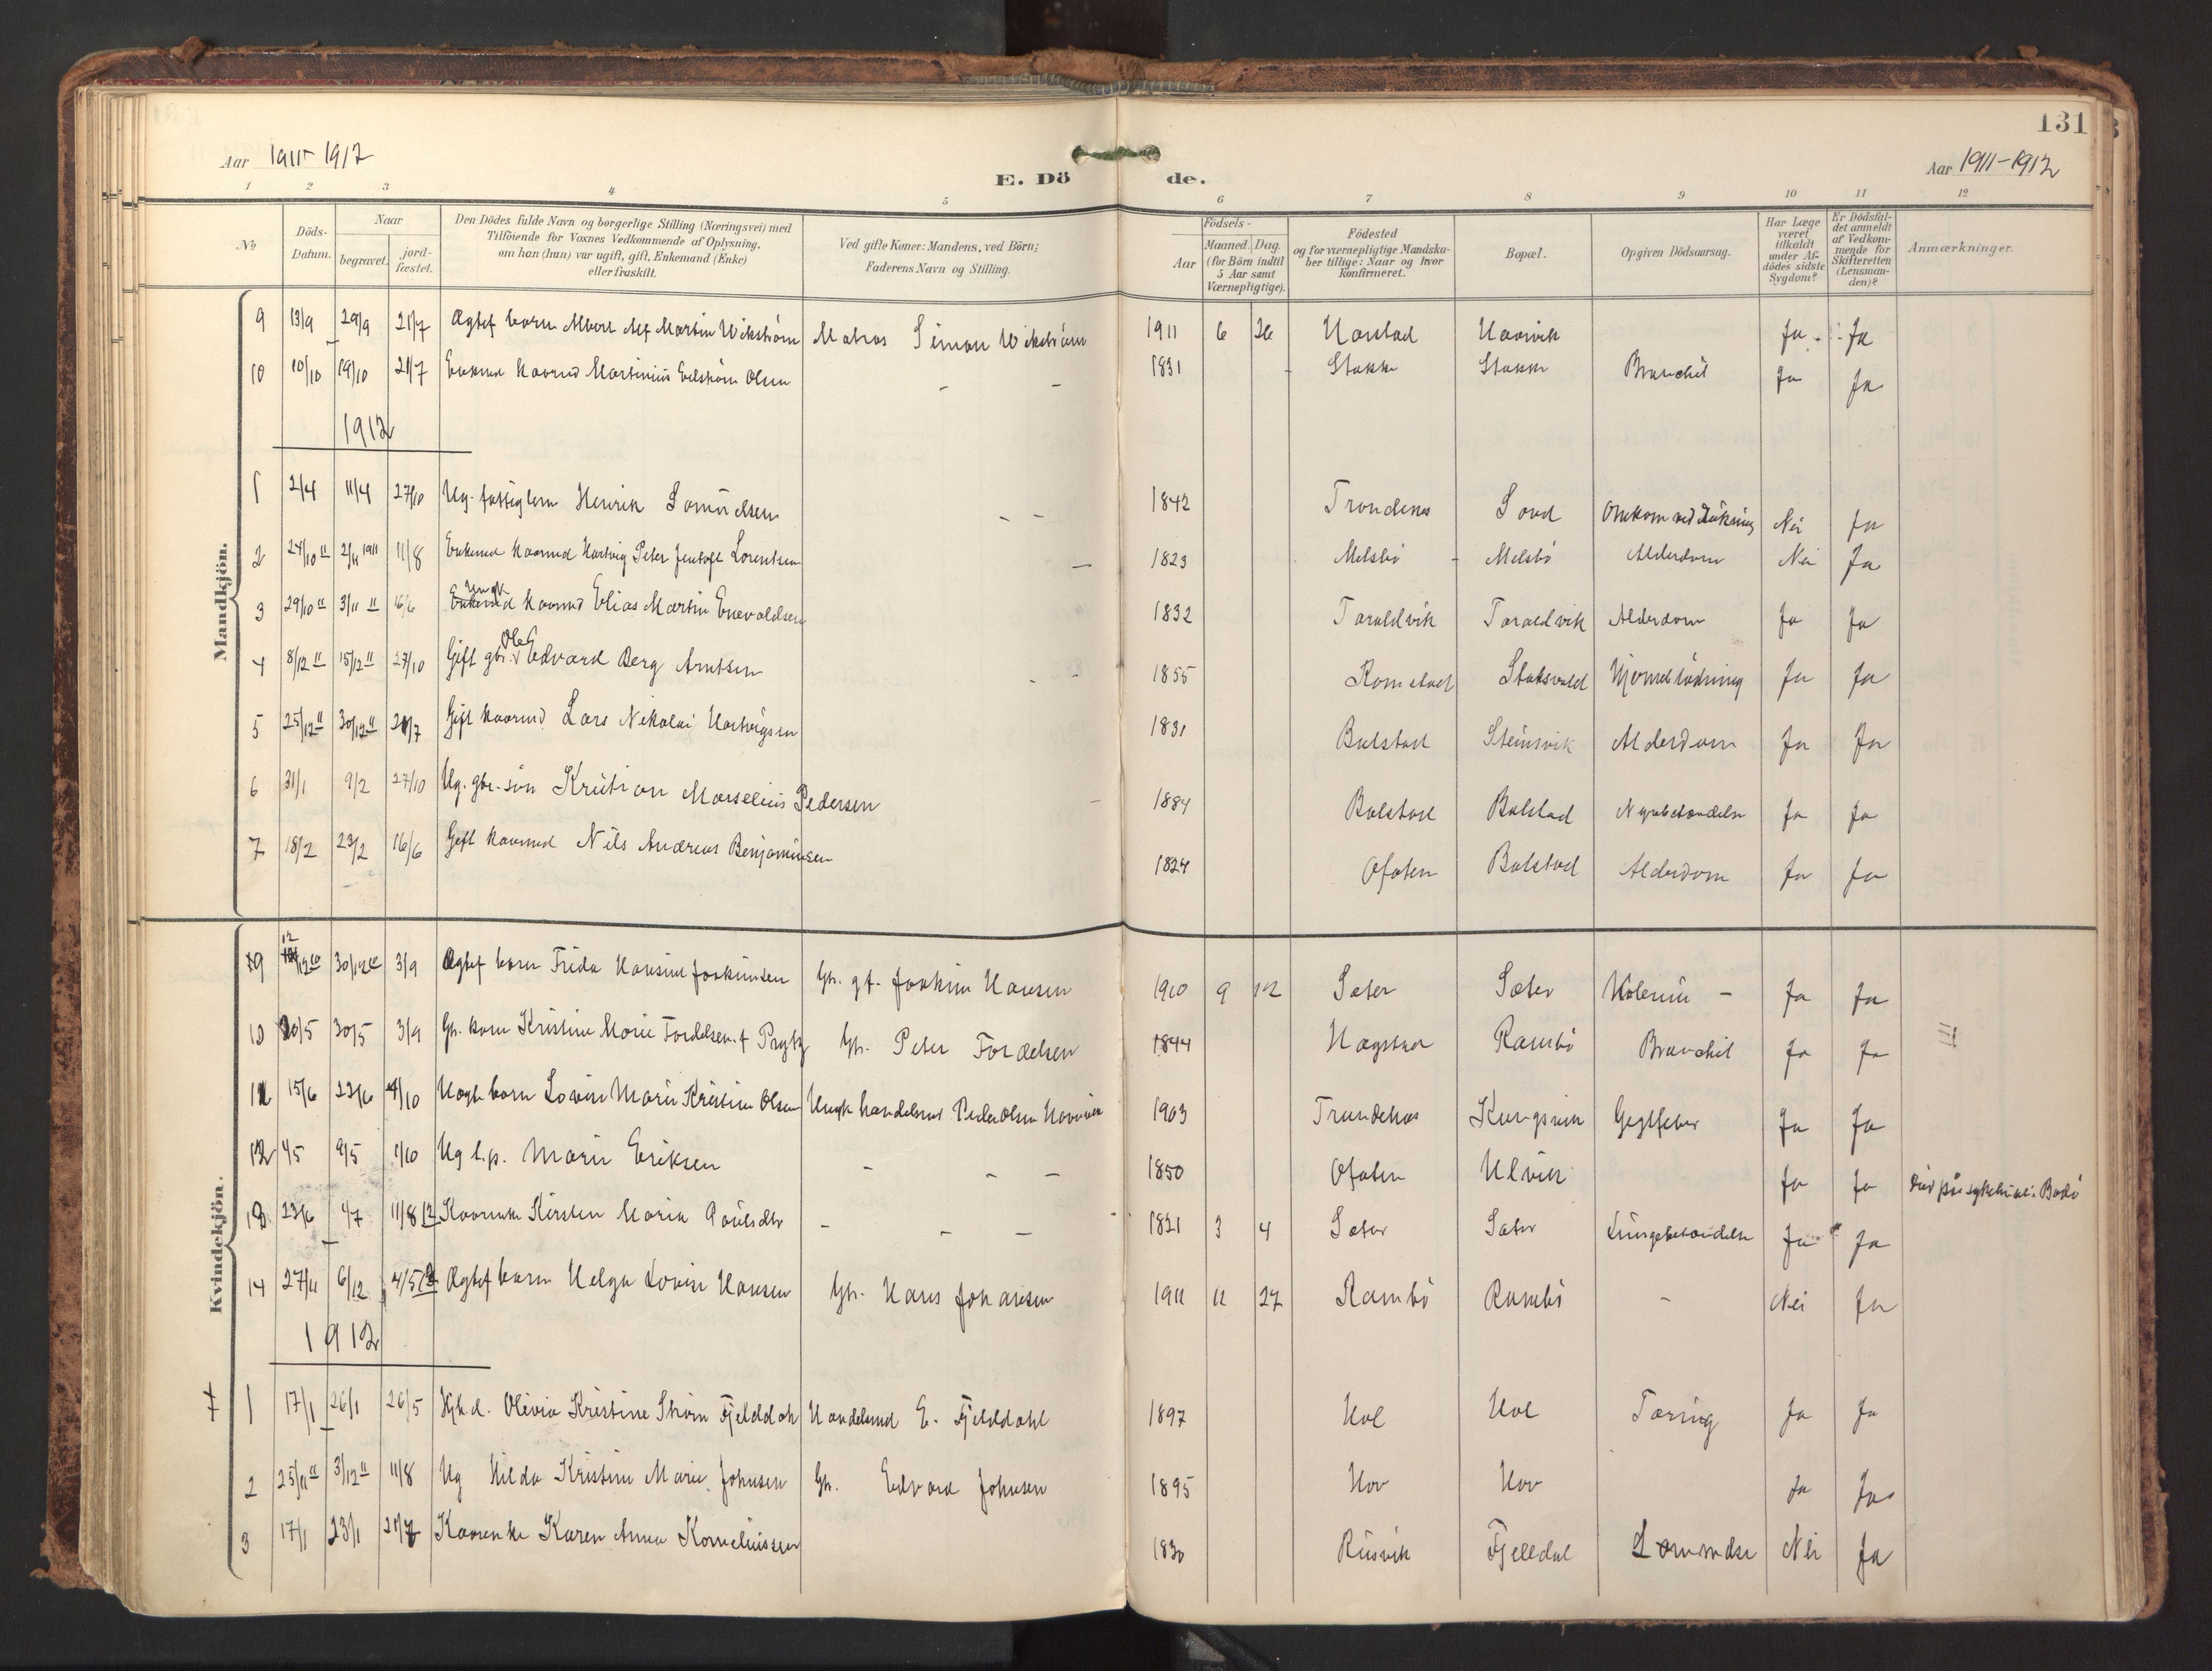 131
Aar 1911-1912
E. Döde.
Aar 1911-1912
1 2 3 4 5 6 7 8 9 10 11 12
No
Döds-Datum.
Naar
begravet.
jord-fæstet.
Den Dödes fulde Navn og borgerlige Stilling (Næringsvei) med
Tilföiende for Voxnes Vedkommende af Oplysning,
om han (hun) var ugift, gift, Enkemand (Enke)
eller fraskilt.
Ved gifte Koner: Mandens, ved Börn;
Faderens Navn og Stilling.
Födsels-
Aar
Maaned. Dag.
(for Börn indtil
5 Aar samt
Værnepligtige).
Födested
og for værnepligtige Mandska-
ber tillige: Naar og hvor
Konfirmeret.
Bopæl.
Opgiven Dödsaarsag.
Har Læge
været
tilkaldt
under Af-
dödes sidste
Sygdom?
Er Dödsfal-
det anmeldt
af Vedkom-
mende for
Skifteretten
(Lensman-
den)?
Anmærkninger.
Mandkjön.
9 13/9 29/9 21/7 Ægtef barn Albert Alf Martin Wikström Matros Simon Wikström 1911 6 26 Harstad Haavik Ja Ja
10 10/10 19/10 21/7 Enkemd kaarmd Martinius Edström Olsen - - 1831 Stokke Stokke Bronchit Ja Ja
1912
1 2/4 11/4 27/10 Ug. fattiglem Henrik Samuelsen - - 1842 Trondenes Sand Omkom ved Nei Ja
2 24/10 11 2/11 1911 11/8 Enkemd kaarmd Hartvig Peter Jentoft Lorentsen - 1823 Melsbö - Melsbö Alderdom Nei Ja
3 29/10 11 3/11 11 16/6 Ungk. Enkemd kaarmd Elias Martin Enevoldsen 1832 Taraldvik Taraldvik Alderdom Ja Ja
4 8/12 11 15/12 11 27/10 Gift gbr. Ole Edvard Berg Arntsen - - 1855 Ramstad Stoksvold Ja Ja
5 25/12 11 30/12 11 21/7 Gift kaarmd Lars Nikolai Hartvigsen 1831 Balstad Steinsvik Alderdom Ja Ja
6 31/1 9/2 27/10 Ug. gbr. sön Kristian Marselius Pedersen - 1884 Balstad Balstad Nyrebetændelse Ja Ja
7 18/2 23/2 16/6 Gift kaarmd Nils Andreas Benjaminsen 1824 Ofoten Balstad Alderdom Ja Ja
Kvindekjön.
9 12/12 10 30/12 10 3/9 Ægtef barn Frida Hansine Joakimsen Gbr. gf. Joakim Hansen 1910 9 12 Sæter Sæter Kolerine - Ja Ja
10 20/5 30/5 3/9 Gbr. kone Kristine Marie Tordelsen f. Prytz Gbr. Peter Tordelsen 1844 Hagstad Rambö Bronchit Ja Ja
11 15/6 23/6 4/10 Uægte barn Lovise Marie Kristine Olsen Ungk handelsmd Peder Olsen Haavik 1903 Trundenes Kongsvik Gigtfeber Ja Ja
12 4/5 9/5 1/10 Ug l.p. Marie Eriksen - - - 1850 Ofoten Ulvik Ja Ja Död på sykehuset i Bodö
13 23/6 4/7 11/8 12 Kaarenke Kirsten Maria Paulsdtr - - - 1821 3 4 Sæter Sæter Lungebetændelse Ja Ja
14 27/11 6/12 4/5 12 Ægtef barn Helga Lovise Hansen Gbr. Hans Johansen 1911 11 27 Rambö Rambö - Nei Ja
1912
1 17/1 26/1 26/5 Olivia Kristine Ström Fjelddahl Handelsmd E. Fjelddahl 1897 Hol Hol Tæring Ja Ja
2 25/11 11 3/12 11 11/8 Ug Hilda Kristine Marie Johnsen Gbr. Edvard Johnsen 1895 Hov Hov Ja Ja
3 17/1 23/1 21/7 Kaarenke Karen Anna Korneliussen 1830 Rusvik Fjelldal Nei Ja